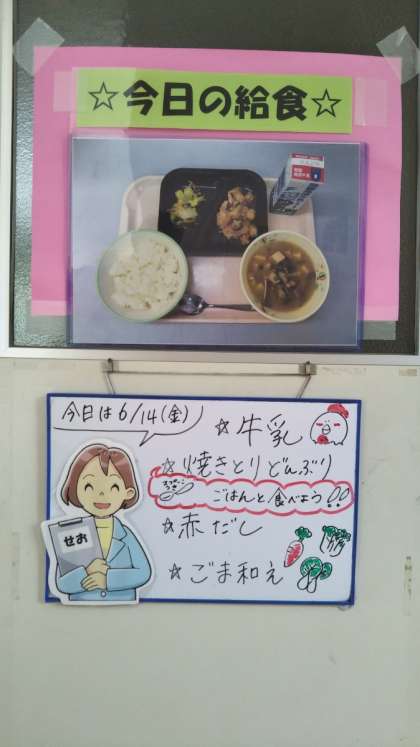 ☆今日の給食☆
今日は6/14(金)
☆牛乳
☆焼きとりどんぶり
ごはんと食べよう!!
☆赤だし
☆ごま和え
せお